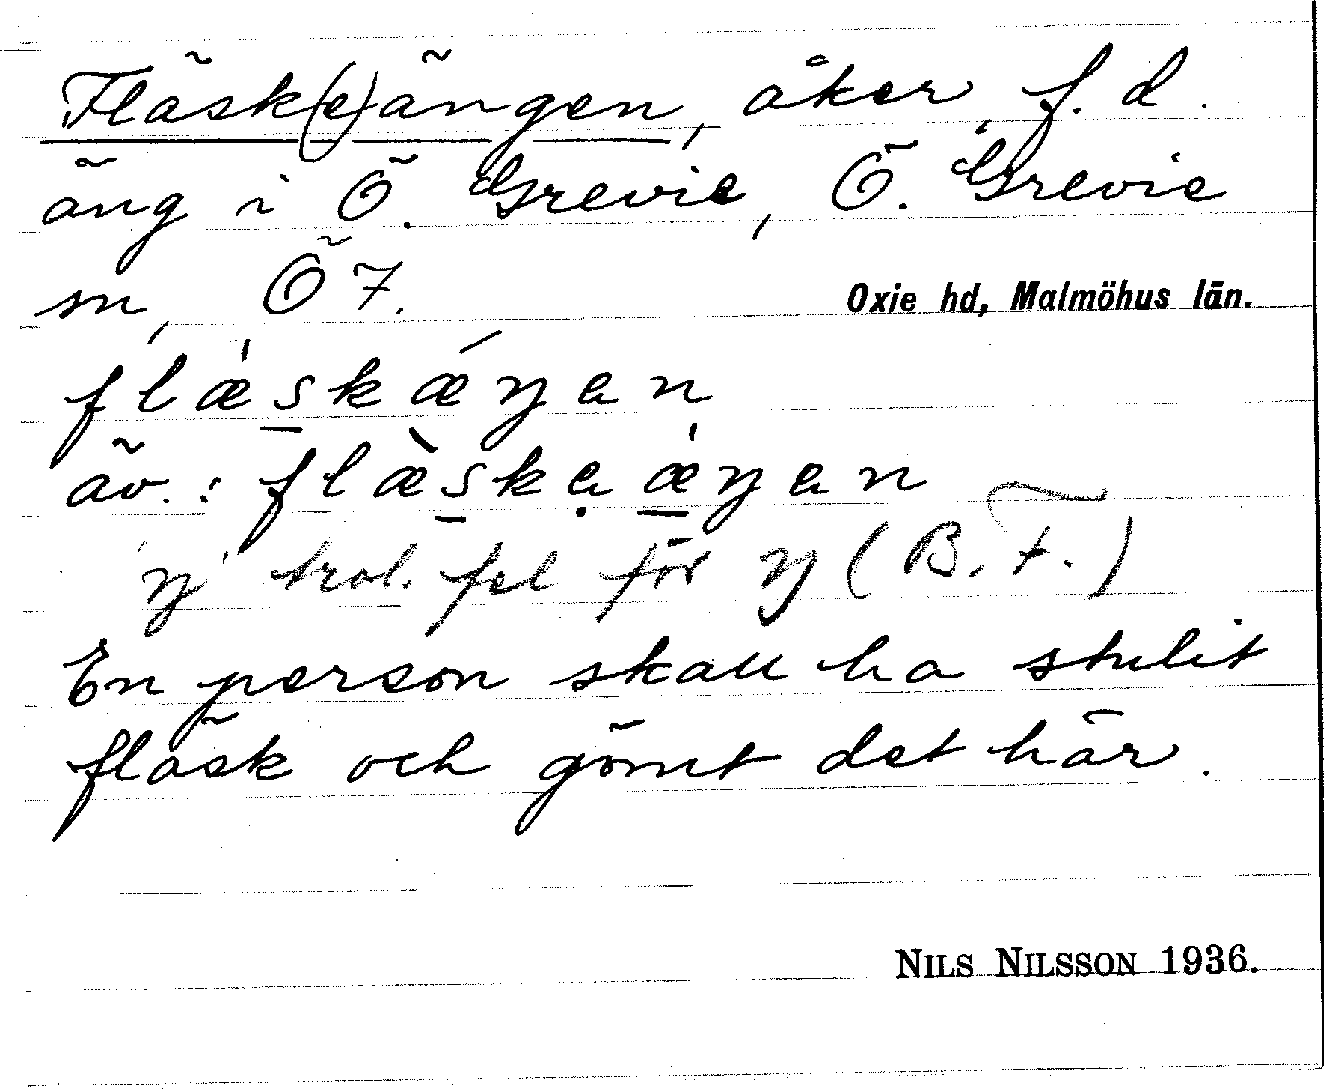 Fläsk(e)ängen, åker, f. d.
äng i Ö. Grevie, Ö. Grevie
sn, Ö 7. Oxie hd, Malmöhus län.
flæ̀skǽŋen
äv.: flæ̀skeæ̀ŋen
'ŋ' trol. fel för ŋ (B. F.)
En person skall ha stulit
fläsk och gömt det här.
NILS NILSSON 1936.